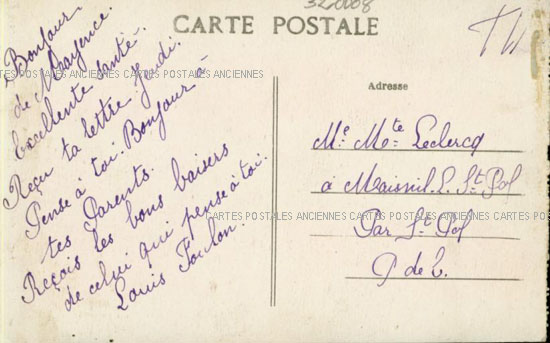 320008
CARTE POSTALE
TW
Bonjour
de Mayence.
Excellente santé.
CARTES POSTALES ANCIENNES CARTES POSTALES ANCIENNES
Reçu ta lettre Jeudi.
Pense à toi. Bonjour à
tes Parents.
Reçois les bons baisers
de celui qui pense à toi.
Louis Foulon.
Adresse
Me. Mte Leclercq
à Maisnil. L. St. Pol
CARTES POSTALES ANCIENNES CARTES POSTALES ANCIENNES
Par St. Pol
P. de C.